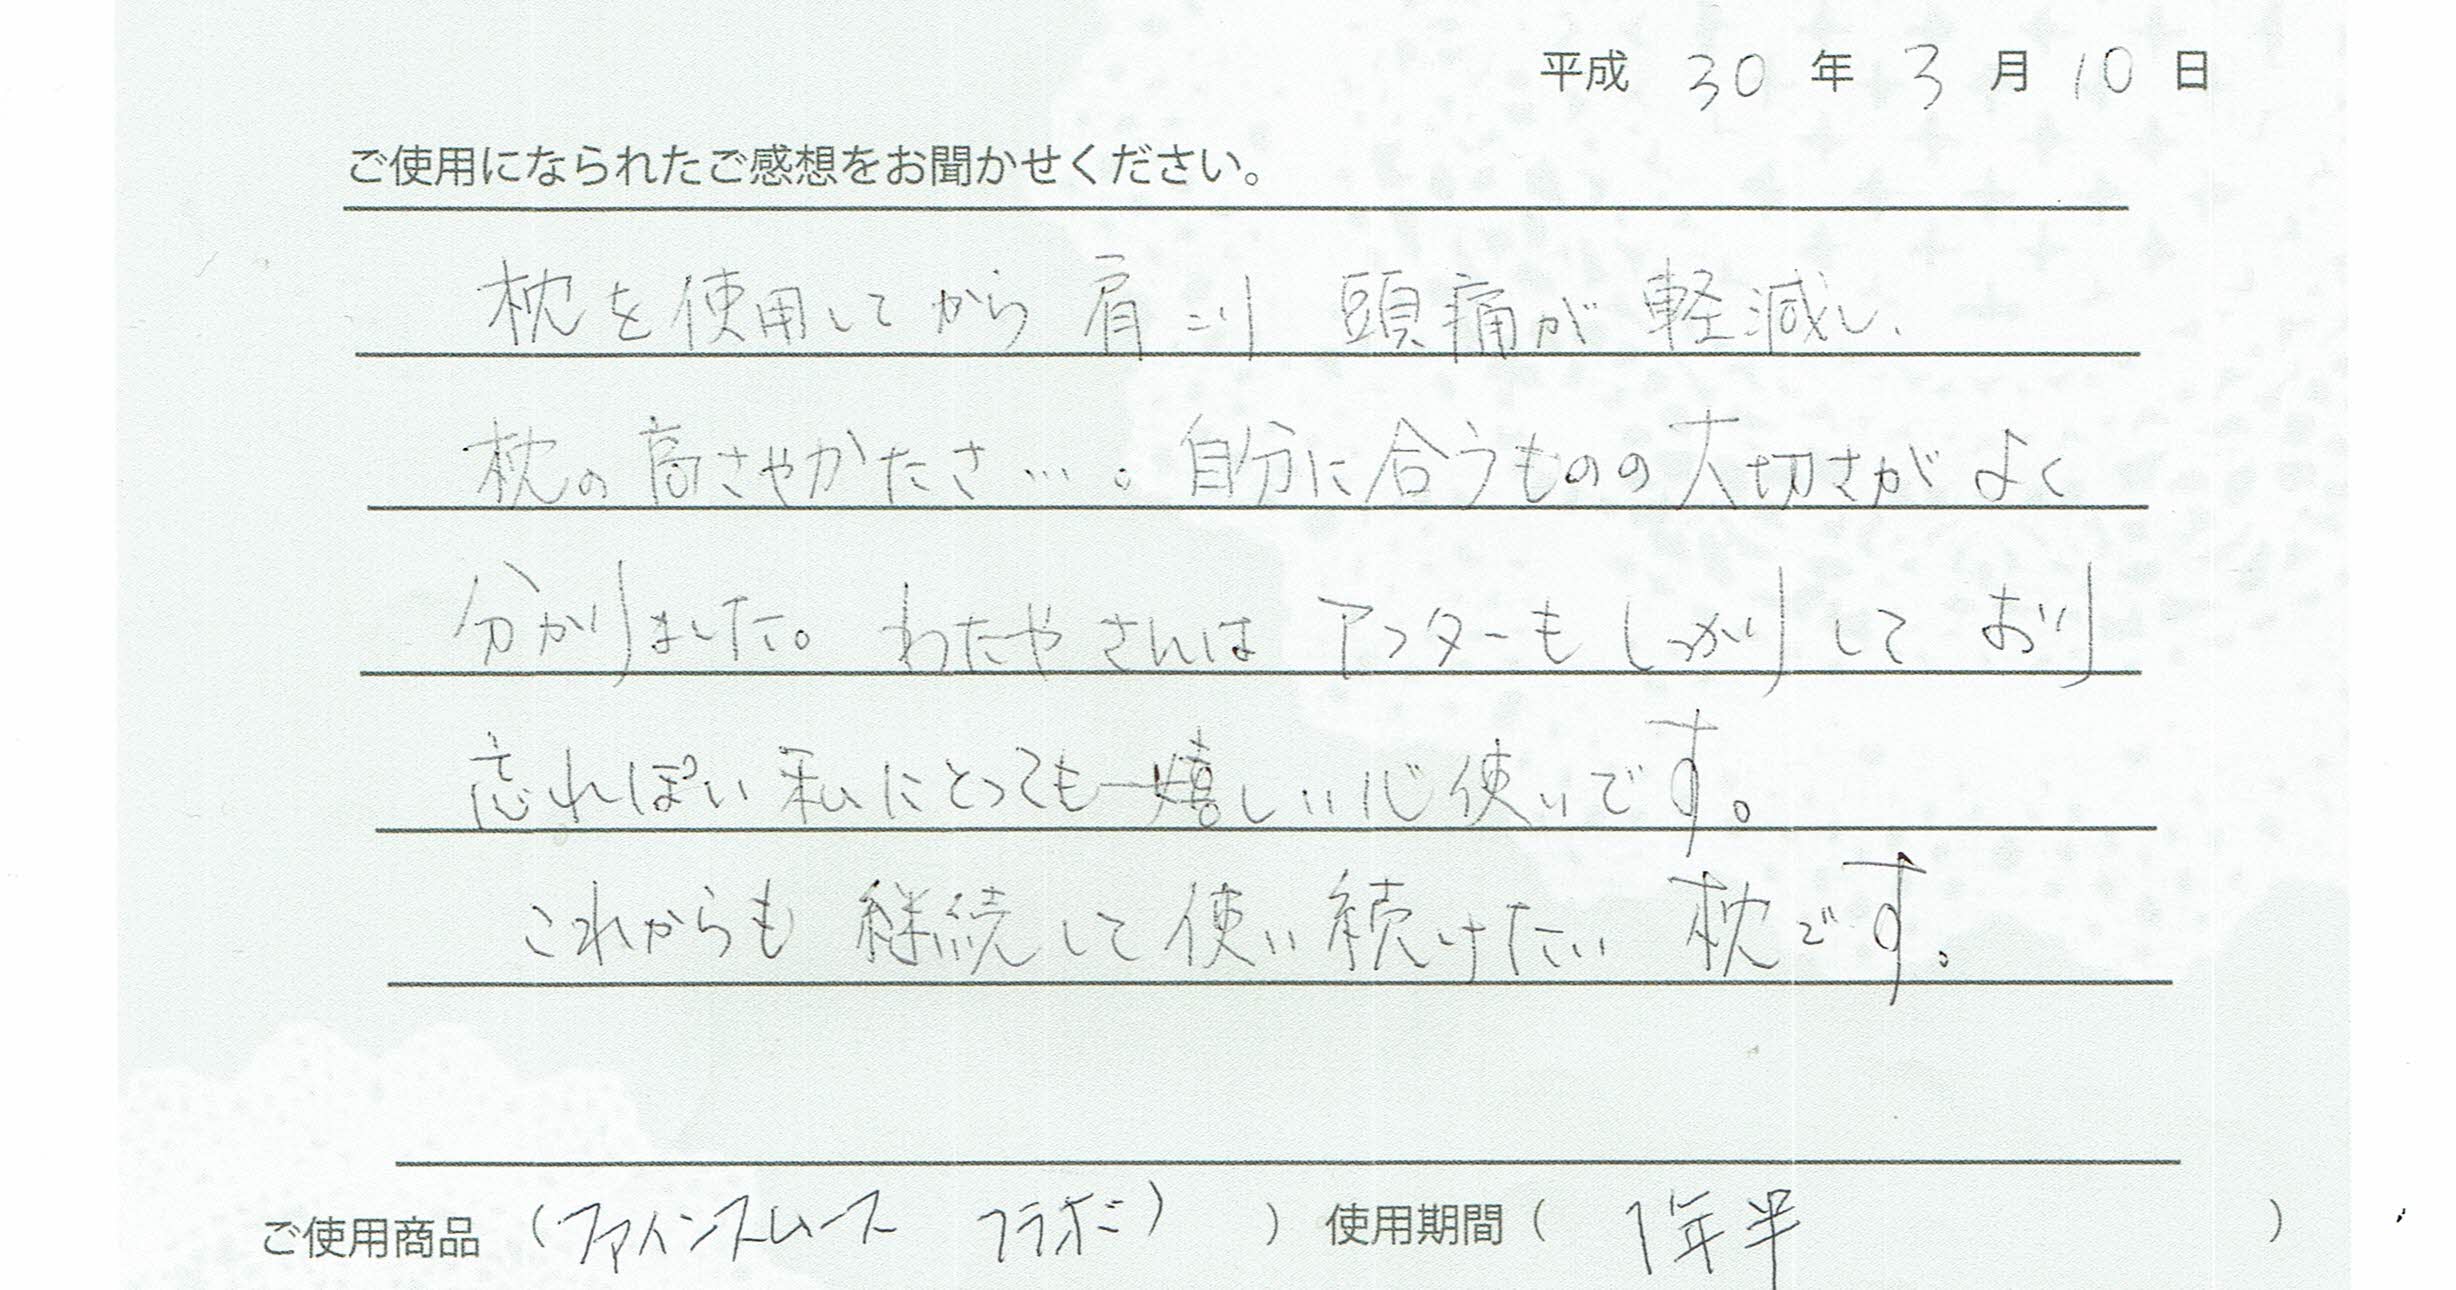 平成 30 年 3 月 10 日
ご使用になられたご感想をお聞かせください。
枕を使用してから 肩こり 頭痛が 軽減し、
枕の高さやかたさ…。自分に合うものの大切さが よく
分かりました。わたやさんは アフターもしっかりして おり
忘れぽい私にとっても嬉しい心使いです。
これからも 継続して 使い続けたい 枕です。
ご使用商品 (ファインスムース フラボミ) ) 使用期間 ( 1年半 )